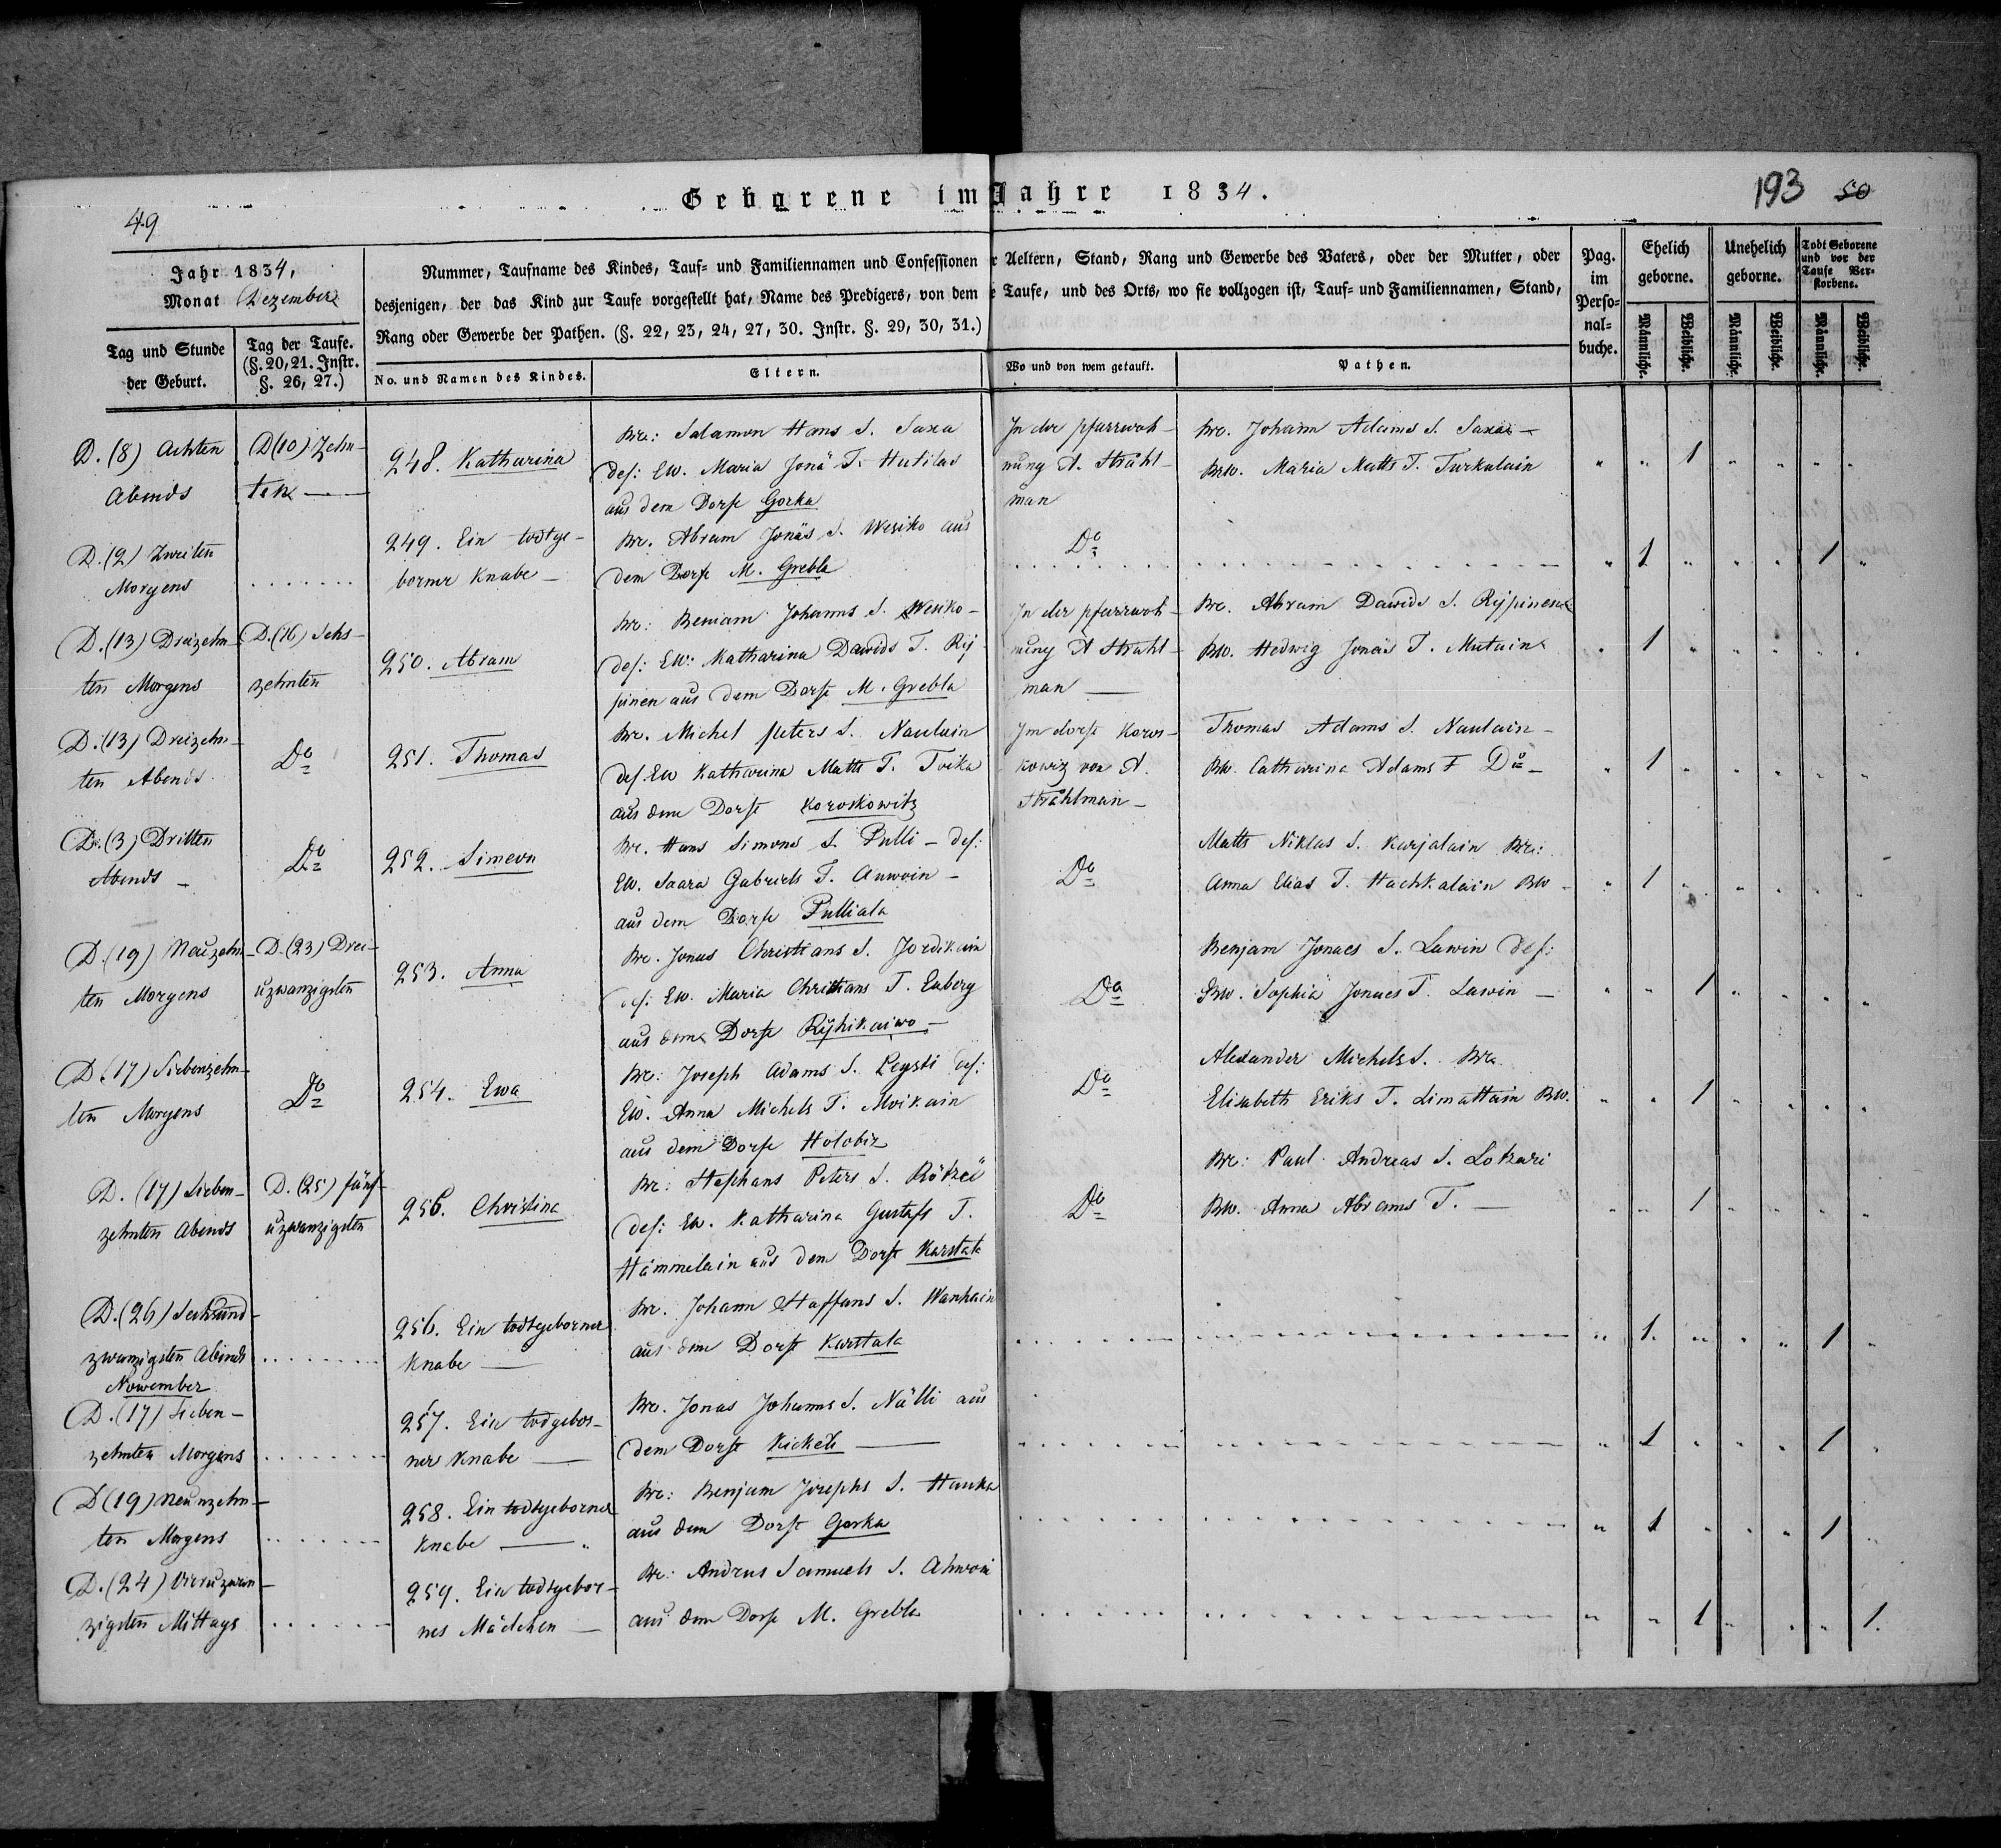 Geborene im Jahre 1834.
49
193 50
Jahr 1834,
Monat Dezember
Tag und Stunde
der Geburt.
Tag der Taufe.
(§. 20, 21. Instr.
§. 26, 27.)
Nummer, Taufname des Kindes, Tauf- und Familiennamen und Confessionen r Aeltern, Stand, Rang und Gewerbe des Vaters, oder der Mutter, oder
desjenigen, der das Kind zur Taufe vorgestellt hat, Name des Predigers, von dem e Taufe, und des Orts, wo sie vollzogen ist, Tauf- und Familiennamen, Stand,
Rang oder Gewerbe der Pathen. (§. 22, 23, 24, 27, 30. Instr. §. 29, 30, 31.)
No. und Namen des Kindes.
Eltern.
Wo und von wem getauft.
Pathen.
Pag.
im
Perso-
nal-
buche.
Ehelich
geborne.
Unehelich
geborne.
Todt Geborene
und vor der
Taufe Ver-
storbene.
Männliche.
Weibliche.
Männliche.
Weibliche.
Männliche.
Weibliche.
D. (8) Achten
Abends
D (10) Zehn-
ten
248. Katharina
Br: Salamon Hans S. Saxa
des: Ew. Maria Jonä T. Hutilas
aus dem Dorfe Gorka
In der pfarrwoh-
nung A. Strahl-
man
Br. Johann Adams S. Saxai
BW. Maria Matts T. Turkulain
1
D. (2) Zweiten
Morgens
249. Ein todtge-
borner Knabe
Br. Abram Jonäs S. Wesiko aus
dem Dorfe M. Grebla
Do
1 1
D. (13) Dreizehn-
ten Morgens
D. (16) Sehs-
zehnten
250. Abram
Br: Beniam Johanns S. Wesiko-
des: EW: Katharina Dawids T. Rij
pinen aus dem Dorfe M. Grebla
In der pfarrwoh-
nung A Strahl-
man
Br. Abram Dawids S. Rijpinen
BW. Hedwig Jonäs T. Mutain
1
D. (13) Dreizehn-
ten Abends
Do
251. Thomas
Br. Michel Peters S. Naulain
des. Ew Katharina Matts T. Toika
aus dem Dorfe Koroskowitz
Im dorfe Koros-
kowiz von A.
Strahlman
Thomas Adams S. Naulain
BW. Catharina Adams T Do
1
D. (3) Dritten
Abends
Do
252. Simeon
Br. Hans Simons S. Pulli - des:
EW. Saara Gabriels T. Anwoin
aus dem Dorfe Pulliala
Do
Matts Niklas S. Karjalain Br:
Anna Elias T. Hachkalain BW
1
D. (19) Neuzehn-
ten Morgens
D. (23) Drei-
uzwanzigsten
253. Anna
Br. Jonas Christians S. Jordikain
des: Ew. Maria Christians T. Enberg
aus dem Dorfe Rijhikaiwo
Do
Benjam Jonaes S. Lawin des:
BW. Sophia Jonaes T. Lawin
1
D. (17) Siebenzehn-
ten Morgens
Do
254. Ewa
Br: Joseph Adams S. Leysti des:
Ew. Anna Michels T. Moikain
aus dem Dorfe Holobiz
Do
Alexander Michels S. Br
Elisabeth Eriks T. Limattain BW.
1
D. (17) Sieben-
zehnten Abends
D. (25) fünf-
uzwanzigsten
255. Christina
Br: Stephans Peters S. Rökzei
des: Ew. Katharina Gustafs T.
Hämmelain aus dem Dorfe Karstala
Do
Br: Paul Andreas S. Lokkari
BW. Anna Abrams T.
1
D. (26) Sechsund-
zwanzigsten Abends
256. Ein todtgeborner
Knabe
Br. Johann Staffans S. Wanhain
aus dem Dorfe Karstala
1. 1
November
D. (17) Sieben-
zehnten Morgens
257. Ein todgebor-
ner Knabe
Br. Jonas Johanns S. Nälli aus
dem Dorfe Kickeli
1 1
D (19) Neunzehn-
ten Morgens
258. Ein todtgeborner
Knabe
Br: Benjam Josephs S. Hauka
aus dem Dorfe Gorka
1 1
D. (24) Vieruzwan-
zigsten Mittags
259. Ein todtgebor-
nes Mädchen
Br: Andreas Samuels S. Ahwoi
aus dem Dorfe M. Grebla
1 1.